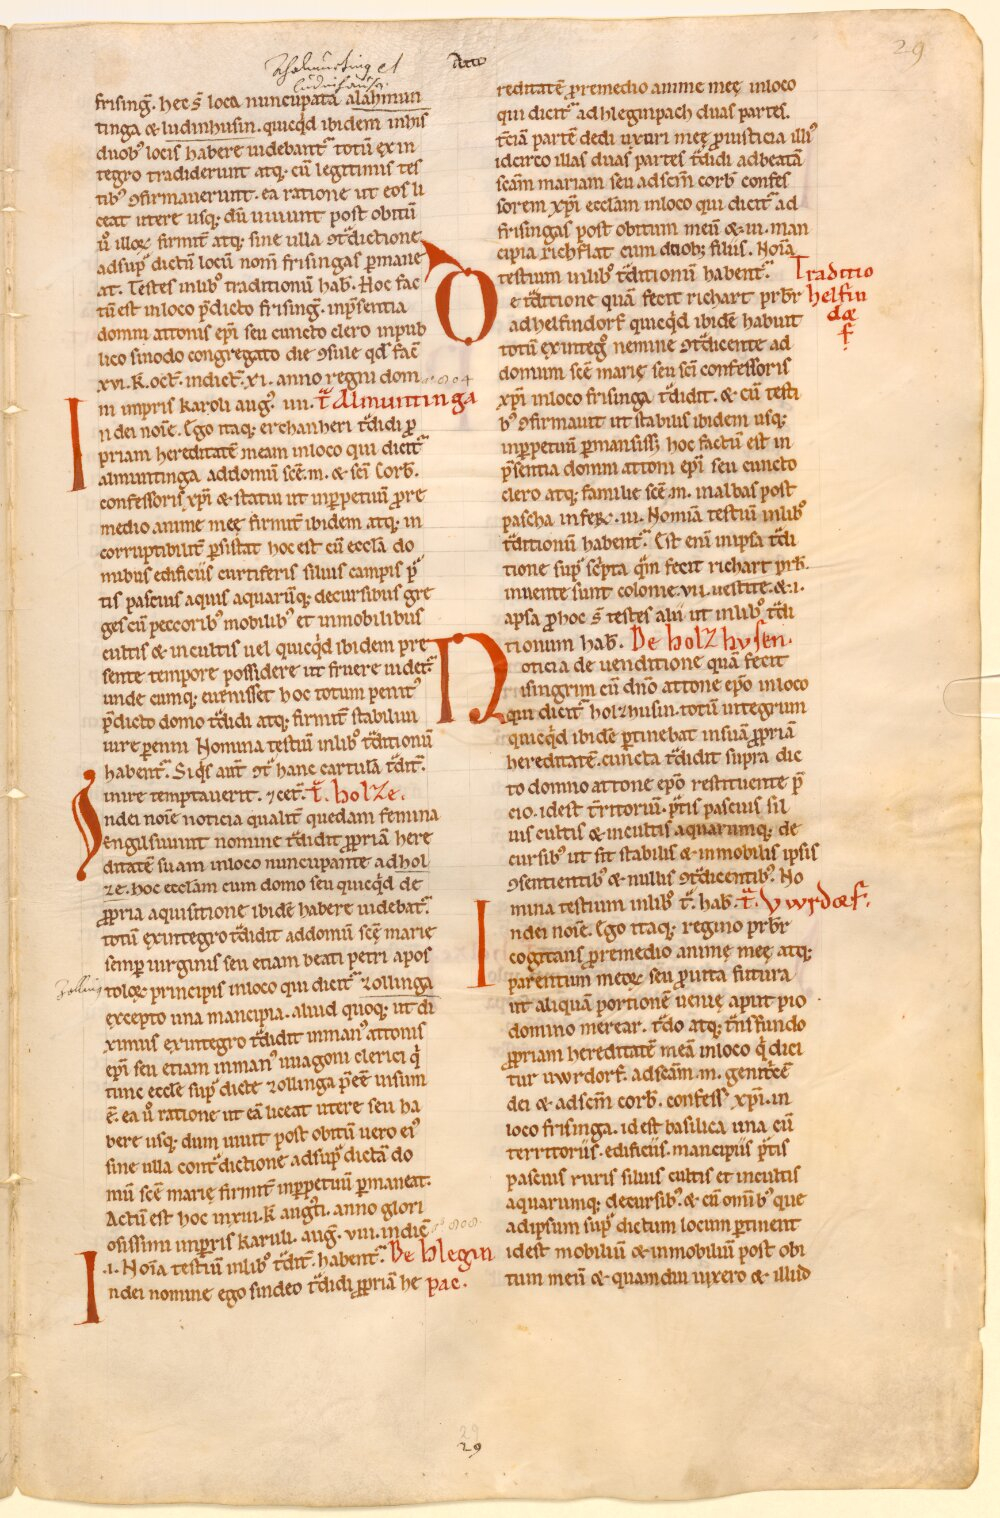 29
Atto
frising̅. hec s̅ loca nuncupata alahmun
tinga & ludinhusin. quicq̇d ibidem in his
duobꝰ locis habere uidebantᷣ totū ex in
tegro tradiderunt atq; cū legitimis tes
tibꝰ ꝯfirmauerunt. ea ratione ut eos li
ceat utere usq; dū uiuunt post obitū
u̅ illoꝝ firmit̅ atq; sine ulla ꝯtᷓdictione
ad sup̄ dictū locū nom̄ frisingas ꝑmane
at. Testes in libꝰ traditionū hab̄. Hoc fac
tū est in loco p̄dicto frising̅. in p̄sentia
domni attonis ep̄i seu cuncto clero in pub
lico sinodo congregato die ꝯsule qd̄ fac̄
xvi. K. oct̄. indict̄. xi. anno regni dom
ni imp̄ris karoli aug̅. iiii. tᷓ. Almuntinga
In dei noīe. Ego itaq; erchanheri tᷓdidi ꝓ
priam hereditatē meam in loco qui dicitᷣ
almuntinga ad domū scē. m. & sc̄i Corb̄.
confessoris xp̄i & statui ut in ꝑpetuū ꝓ re
medio anime meę firmit̅ ibidem atq; in
corruptibilit̅ ꝑsistat hoc est cū ecclā do
mibus edificiis curtiferis siluis campis p̄
tis pascuis aquis aquarūq; decursibus gre
ges cū peccoribꝰ mobilibꝰ et inmobilibus
cultis & incultis uel quicq̇d ibidem pre
sente tempore possidere ut fruere uidetᷣ
unde cumq; euenisset hoc totum penitꝰ
p̄dicto domo tᷓdidi atq; firmit̅ stabiliui
iure ꝑenni Nomina testiū in libꝰ tᷓditionū
habentᷣ. Siq̇s aut̄ ꝯtᷓ hanc cartulā tᷓdit̄.
inire temptauerit. ⁊ cet̄. tᷓ. holze.
In dei noīe noticia qualit̅ quedam femina
engilsuuint nomine tᷓdidit ꝓpriā here
ditatē suam in loco nuncupante ad hol
ze. hoc ecclām cum domo seu quicq̇d de
ꝓpria aquisitione ibidē habere uidebatᷣ.
totū ex integro tᷓdidit ad domū scę marię
semꝑ uirginis seu etiam beati petri apos
zolling toloꝝ principis in loco qui dicitᷣ zollinga
excepto una mancipia. aliud quoq; ut di
ximus ex integro tᷓdidit in manꝰ attonis
ep̄i seu etiam in manꝰ uuagoni clerici q̇
tunc eccłe sup̄ dicte zollinga p̄ eē uisum
ē. ea u̅ ratione ut eā liceat utere seu ha
bere usq; dum uiuit post obitū uero eiꝰ
sine ulla contᷓdictione ad sup̄ dictā do
mū scē marię firmit̅ in ꝑpetuū ꝑmaneat.
Actū est hoc in xvii. K augti. anno glori
osissimi imp̄ris karuli. aug̅. viii. indic̄
.i. Noīa testiū in libꝰ tᷓdit̄. habentᷣ. De hlegin
In dei nomine ego sindeo tᷓdidi ꝓpriā he pac.
reditatē ꝓ remedio anime meę in loco
qui dicitᷣ ad hleginpach duas partes.
t̄ciā partē dedi uxori meę ꝓ iusticia illiꝰ
idcirco illas duas partes tᷓdidi ad beatā
scām mariam seu ad scm̄ corb̄ confes
sorem xp̄i ecclām in loco qui dicitᷣ ad
frisingas post obitum meū & iii. man
cipia richflat cum duob; filiis. Noīa
testium in libꝰ tᷓditionū habentᷣ. Traditio
De tᷓditione quā fecit richart prb̄r helfin
ad helfindorf quicq̇d ibidē habuit dor
totū ex integro nemine ꝯtᷓdicente ad f
domum scē marię seu sc̄i confessoris
xp̄i in loco frisinga tᷓdidit. & cū testi
bꝰ ꝯfirmauit ut stabilis ibidem usq;
in ꝑpetuū ꝑmansiss; hoc factū est in
p̄sentia domni attoni ep̄i seu cuncto
clero atq; familie scē. m. in albas post
pascha in fer̄. iii. Nomīa testiū in libꝰ
tᷓditionū habentᷣ. Est enī in ipsa tᷓdi
tione sup̄ sc̄pta qm̄ fecit richart prb̄.
inuente sunt colonie. vii. uestite. &. i.
apsa ꝓ hoc s̅ testes alii ut in libꝰ tᷓdi
tionum hab̄. De holzhusen.
Noticia de uenditione quā fecit
isingrim cū dn̄o attone ep̄o in loco
qui dicitᷣ holzhusin. totū integrum
quicq̇d ibidē ꝑtinebat in suā ꝓpriā
hereditatē. cuncta tᷓdidit supra dic
to domno attone ep̄o restituente p̄
cio. id est t̄ritoriū. p̄tis pascuis sil
uis cultis & incultis aquarumq; de
cursibꝰ ut sit stabilis & inmobilis ipsis
ꝯsentientibꝰ & nullis ꝯtᷓdicentibꝰ. No
mina testium in libꝰ tᷓ. hab̄. tᷓ. Vwrdorf.
In dei noīe. Ego itaq; regino prb̄r
cogitans ꝓ remedio animę meę atq;
parentum meoꝝ seu ꝓ uita futura
ut aliquā portionē uenię aput pio
domino merear. tᷓdo atq; tn̄sfundo
ꝓpriam hereditatē meā in loco q̇ dici
tur uwrdorf. ad scām. m. genitᷓcē
dei & ad scm̄ corb̄. confess̄ xp̄i. in
loco frisinga. id est basilica una cū
territoriis. edificiis. mancipiis p̄tis
pascuis ruris siluis cultis et incultis
aquarumq; decursibꝰ. & cū om̄ibꝰ que
ad ipsum sup̄ dictum locum ꝑtinent
id est mobiliū & inmobiliū post obi
tum meū & quamdiu uixero & illud
29
29